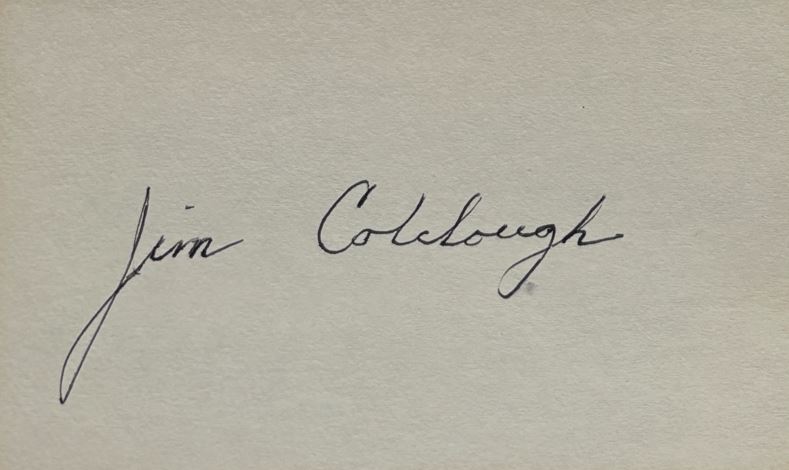 Jim Colclough